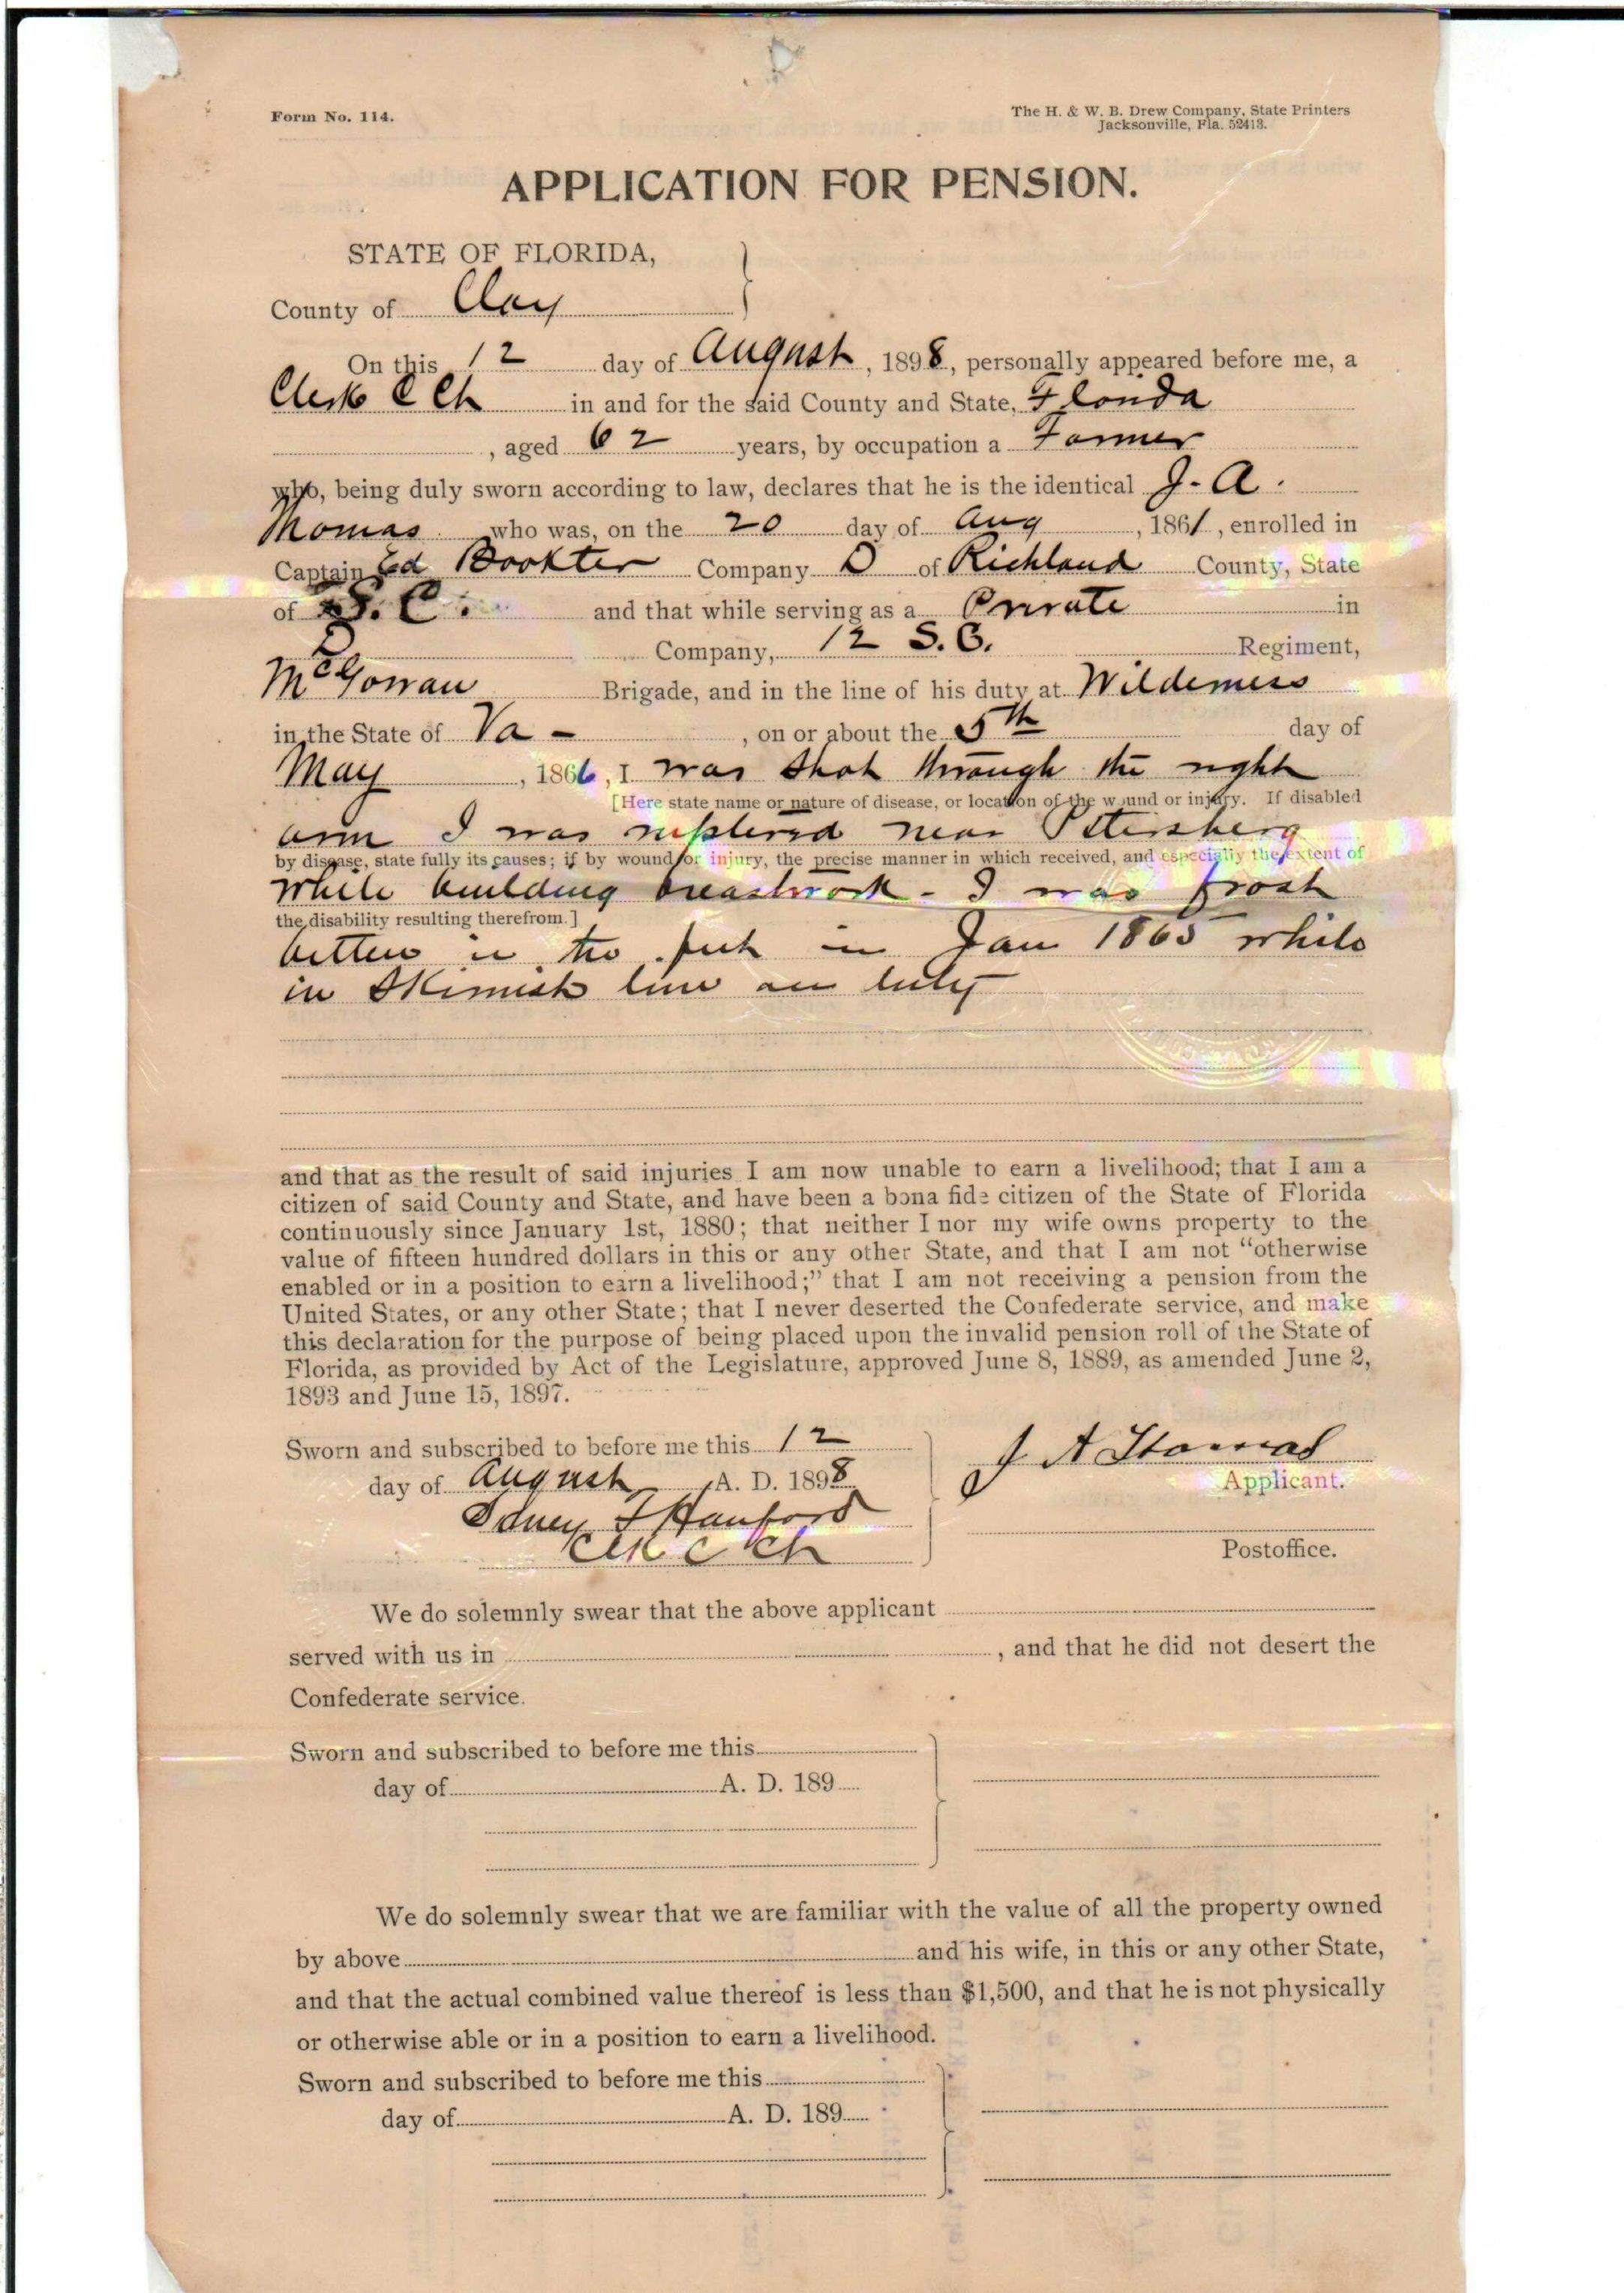 Form No. 114.
The H. & W. B. Drew Company, State Printers
Jacksonville, Fla. 52413.
APPLICATION FOR PENSION.
STATE OF FLORIDA,
County of Clay
On this 12 day of August, 1898, personally appeared before me, a
Clerk C Ct in and for the said County and State, Florida
, aged 62 years, by occupation a Farmer
who, being duly sworn according to law, declares that he is the identical J. A.
Thomas who was, on the 20 day of Aug, 1861, enrolled in
Captain Ed Bookter Company D of Richland County, State
of S. C. and that while serving as a Private in
D Company, 12 S. C. Regiment,
McGowan Brigade, and in the line of his duty at Wilderness
in the State of Va - , on or about the 5th day of
May, 186 , I was shot through the right
[Here state name or nature of disease, or location of the wound or injury. If disabled
arm I was ruptered near Petersberg
by disease, state fully its causes; if by wound or injury, the precise manner in which received, and especially the extent of
while building breastwork - I was frost
the disability resulting therefrom.]
bitten in the feet in Jan 1865 while
in Skirmish line on duty
and that as the result of said injuries I am now unable to earn a livelihood; that I am a
citizen of said County and State, and have been a bona fide citizen of the State of Florida
continuously since January 1st, 1880; that neither I nor my wife owns property to the
value of fifteen hundred dollars in this or any other State, and that I am not "otherwise
enabled or in a position to earn a livelihood;" that I am not receiving a pension from the
United States, or any other State; that I never deserted the Confederate service, and make
this declaration for the purpose of being placed upon the invalid pension roll of the State of
Florida, as provided by Act of the Legislature, approved June 8, 1889, as amended June 2,
1893 and June 15, 1897.
Sworn and subscribed to before me this 12
day of August A. D. 1898
Sidney F Hanford
Clk C Ct
J A Thomas
Applicant.
Postoffice.
We do solemnly swear that the above applicant
served with us in , and that he did not desert the
Confederate service.
Sworn and subscribed to before me this
day of A. D. 189
We do solemnly swear that we are familiar with the value of all the property owned
by above and his wife, in this or any other State,
and that the actual combined value thereof is less than $1,500, and that he is not physically
or otherwise able or in a position to earn a livelihood.
Sworn and subscribed to before me this
day of A. D. 189